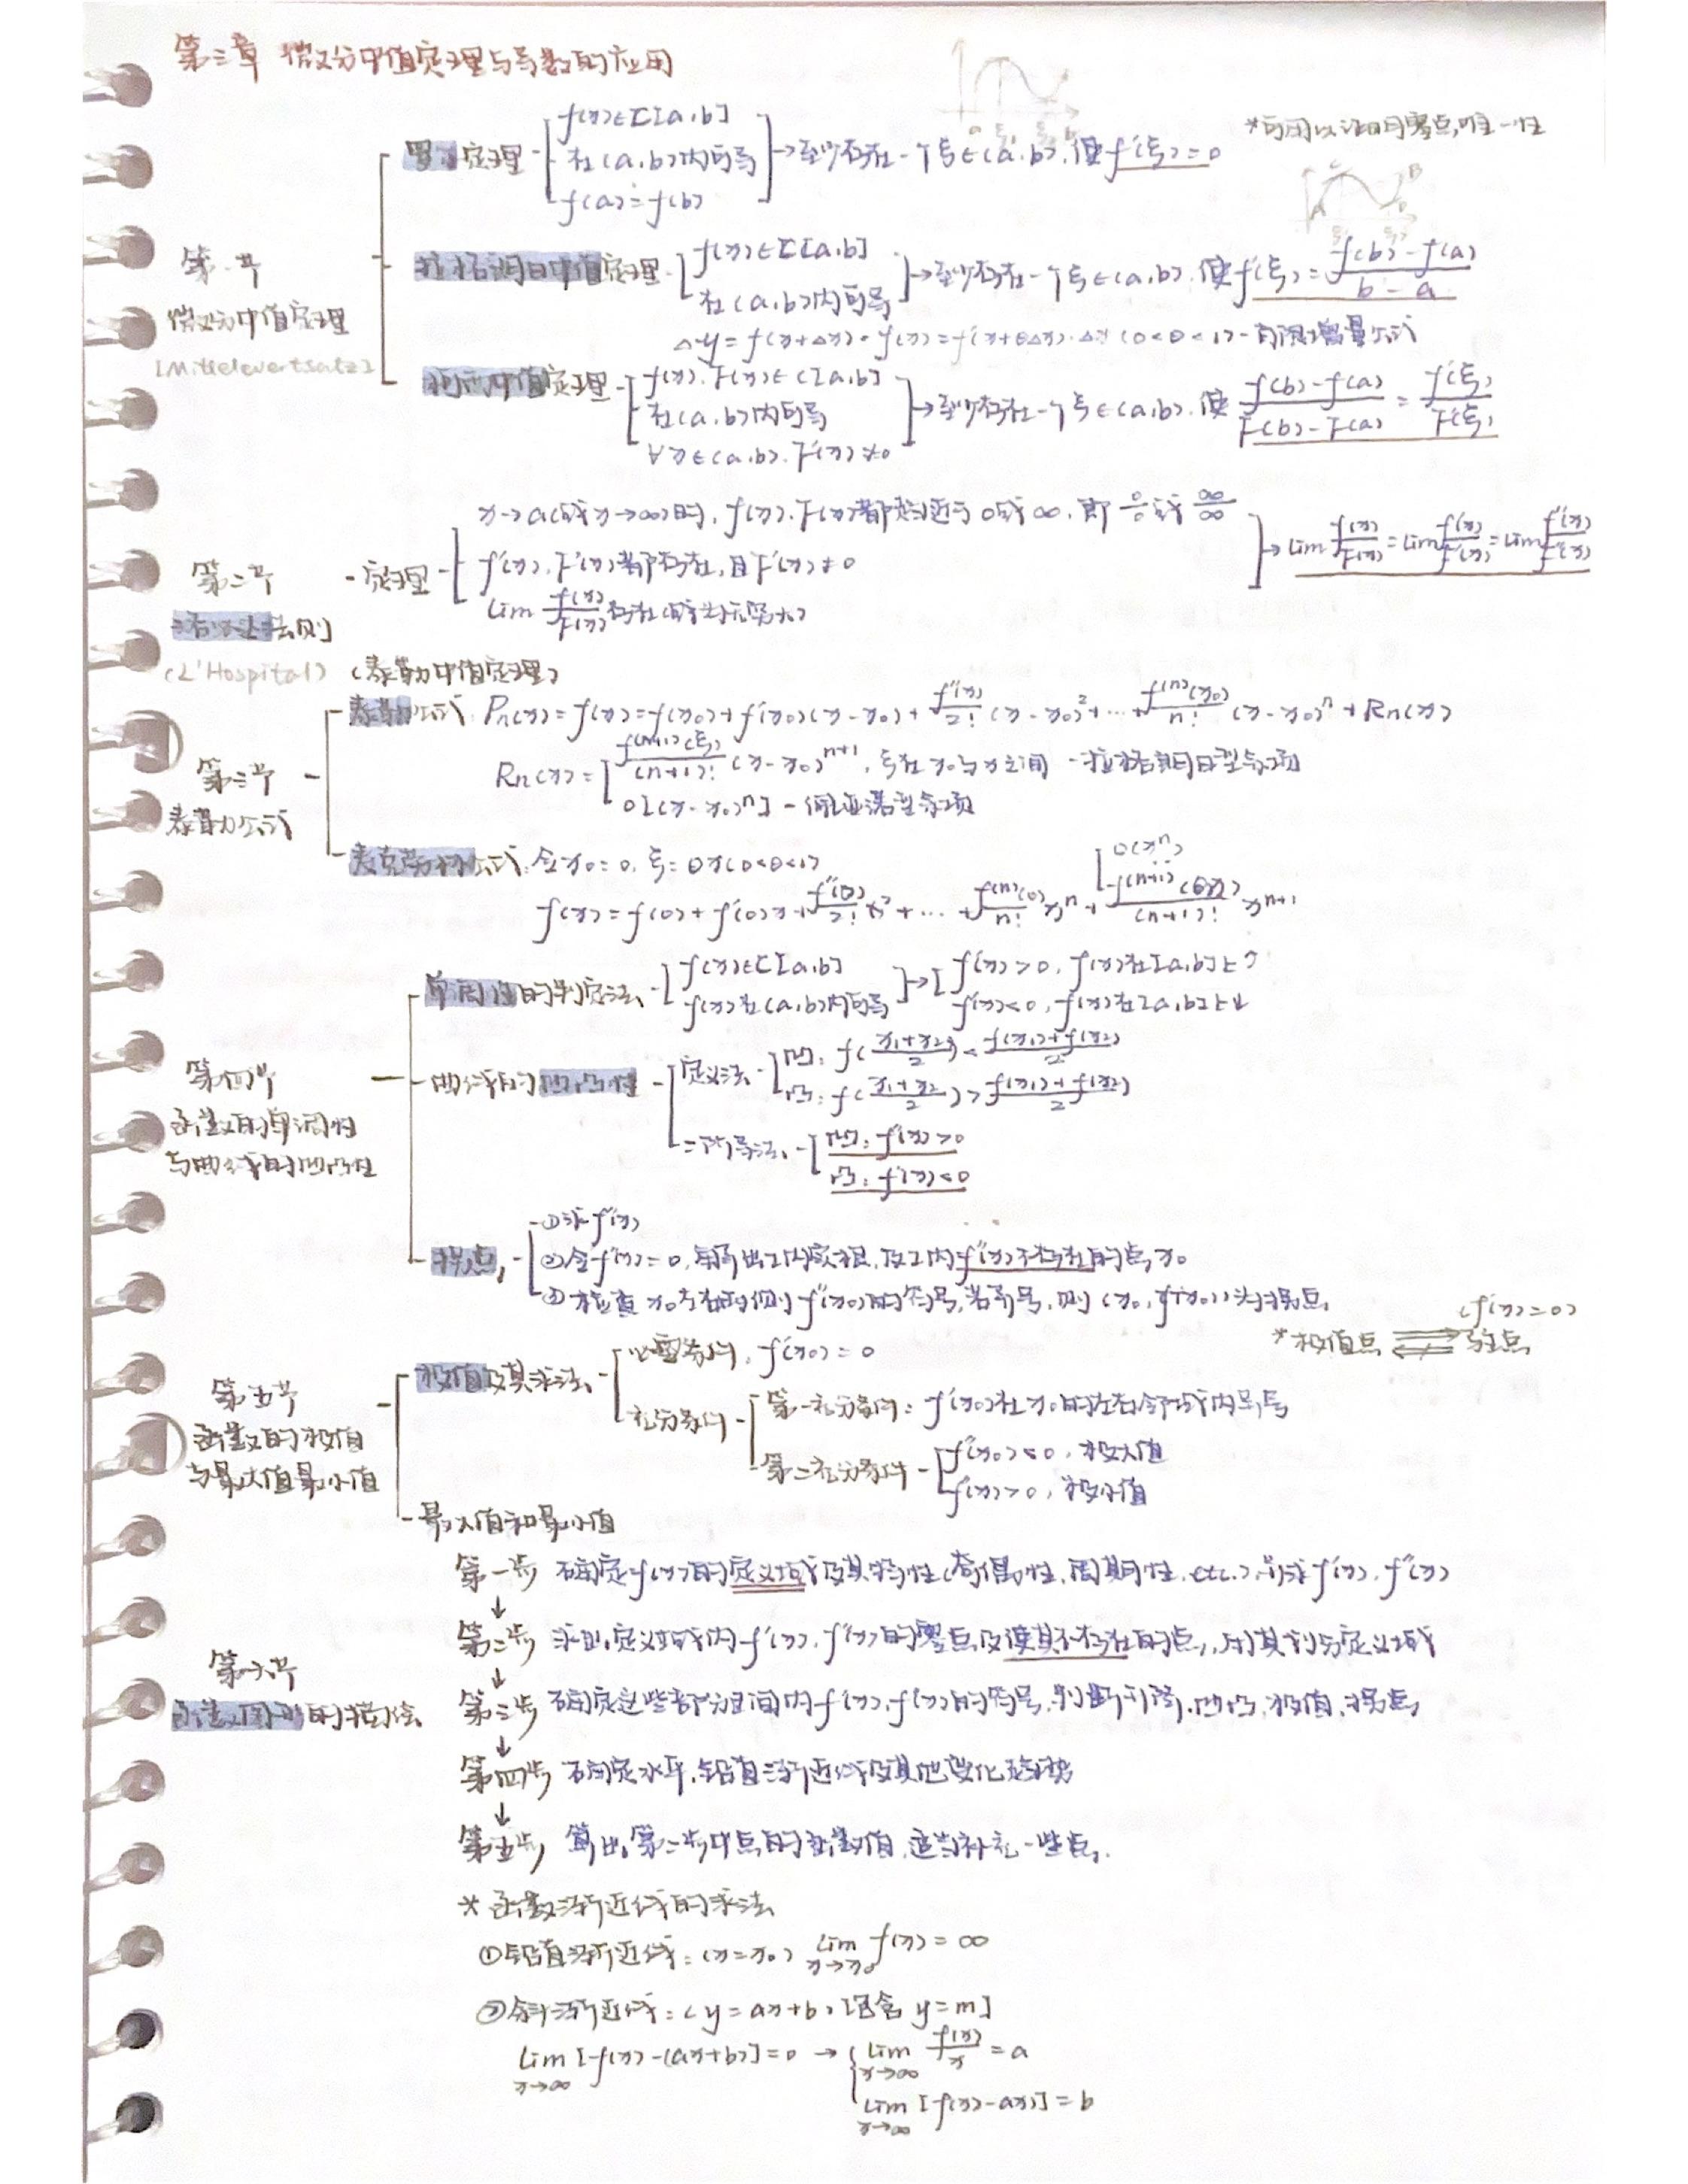 第三章 微分中值定理与导数的应用
*可用以证明零点唯一性
罗尔定理
f(x)∈C[a,b]
在(a,b)内可导
f(a)=f(b)
→至少存在一个ξ∈(a,b),使f'(ξ)=0
第一节
微分中值定理
[Mittelwertsatz]
拉格朗日中值定理
f(x)∈C[a,b]
在(a,b)内可导
→至少存在一个ξ∈(a,b),使f'(ξ)=(f(b)-f(a))/(b-a)
Δy=f(x+Δx)-f(x)=f'(x+θΔx)·Δx (0<θ<1)-有限增量公式
柯西中值定理
f(x),F(x)∈C[a,b]
在(a,b)内可导
∀x∈(a,b),F'(x)≠0
→至少存在一个ξ∈(a,b),使(f(b)-f(a))/(F(b)-F(a))=f'(ξ)/F'(ξ)
第二节
洛必达法则
(L'Hospital)
定理
x→a(或x→∞)时,f(x),F(x)都趋近于0或∞,即0/0或∞/∞
f'(x),F'(x)都存在,且F'(x)≠0
lim f'(x)/F'(x)存在(或为无穷大)
→lim f(x)/F(x)=lim f'(x)/F'(x)=lim f''(x)/F''(x)
(泰勒中值定理)
第三节
泰勒公式
泰勒公式: Pn(x)=f(x)=f(x₀)+f'(x₀)(x-x₀)+f''(x)/2!(x-x₀)²+…+f⁽ⁿ⁾(x₀)/n!(x-x₀)ⁿ+Rn(x)
Rn(x)=
f⁽ⁿ⁺¹⁾(ξ)/(n+1)!(x-x₀)ⁿ⁺¹,ξ在x₀与x之间 -拉格朗日型余项
o[(x-x₀)ⁿ]-佩亚诺型余项
麦克劳林公式: 令x₀=0,ξ=θx(0<θ<1)
f(x)=f(0)+f'(0)x+f''(0)/2!x²+…+f⁽ⁿ⁾(0)/n!xⁿ+
o(xⁿ)
f⁽ⁿ⁺¹⁾(θx)/(n+1)!xⁿ⁺¹
第四节
函数的单调性
与曲线的凹凸性
单调性的判定法
f(x)∈C[a,b]
f(x)在(a,b)内可导
f'(x)>0,f(x)在[a,b]上↑
f'(x)<0,f(x)在[a,b]上↓
曲线的凹凸性
定义法
凹:f((x₁+x₂)/2)<(f(x₁)+f(x₂))/2
凸:f((x₁+x₂)/2)>(f(x₁)+f(x₂))/2
二阶导法
凹:f''(x)>0
凸:f''(x)<0
拐点
①求f''(x)
②令f''(x)=0,解出I内实根,及I内f''(x)不存在的点x₀
③检查x₀左右两侧f''(x₀)的符号,若异号,则(x₀,f(x₀))为拐点
(f'(x)=0)
*极值点 驻点
第五节
函数的极值
与最大值最小值
极值及其求法
必要条件,f'(x₀)=0
充分条件
第一充分条件:f'(x₀)在x₀的左右邻域内异号
第二充分条件
f''(x₀)<0,极大值
f''(x)>0,极小值
最大值和最小值
第六节
函数图形的描绘
第一步 确定f(x)的定义域及其特性(奇偶性,周期性,etc.),并求f'(x),f''(x)
↓
第二步 求出定义域内f'(x),f''(x)的零点及使其不存在的点,用其划分定义域
↓
第三步 确定这些部分区间内f'(x),f''(x)的符号,判断升降,凹凸,极值,拐点
↓
第四步 确定水平,铅直渐近线及其他变化趋势
↓
第五步 算出第二步中点的函数值,适当补充一些点.
* 函数渐近线的求法
①铅直渐近线:(x=x₀) lim x→x₀ f(x)=∞
②斜渐近线:(y=ax+b)[包含y=m]
lim x→∞ [f(x)-(ax+b)]=0 → lim x→∞ f(x)/x=a
lim x→∞ [f(x)-ax]=b